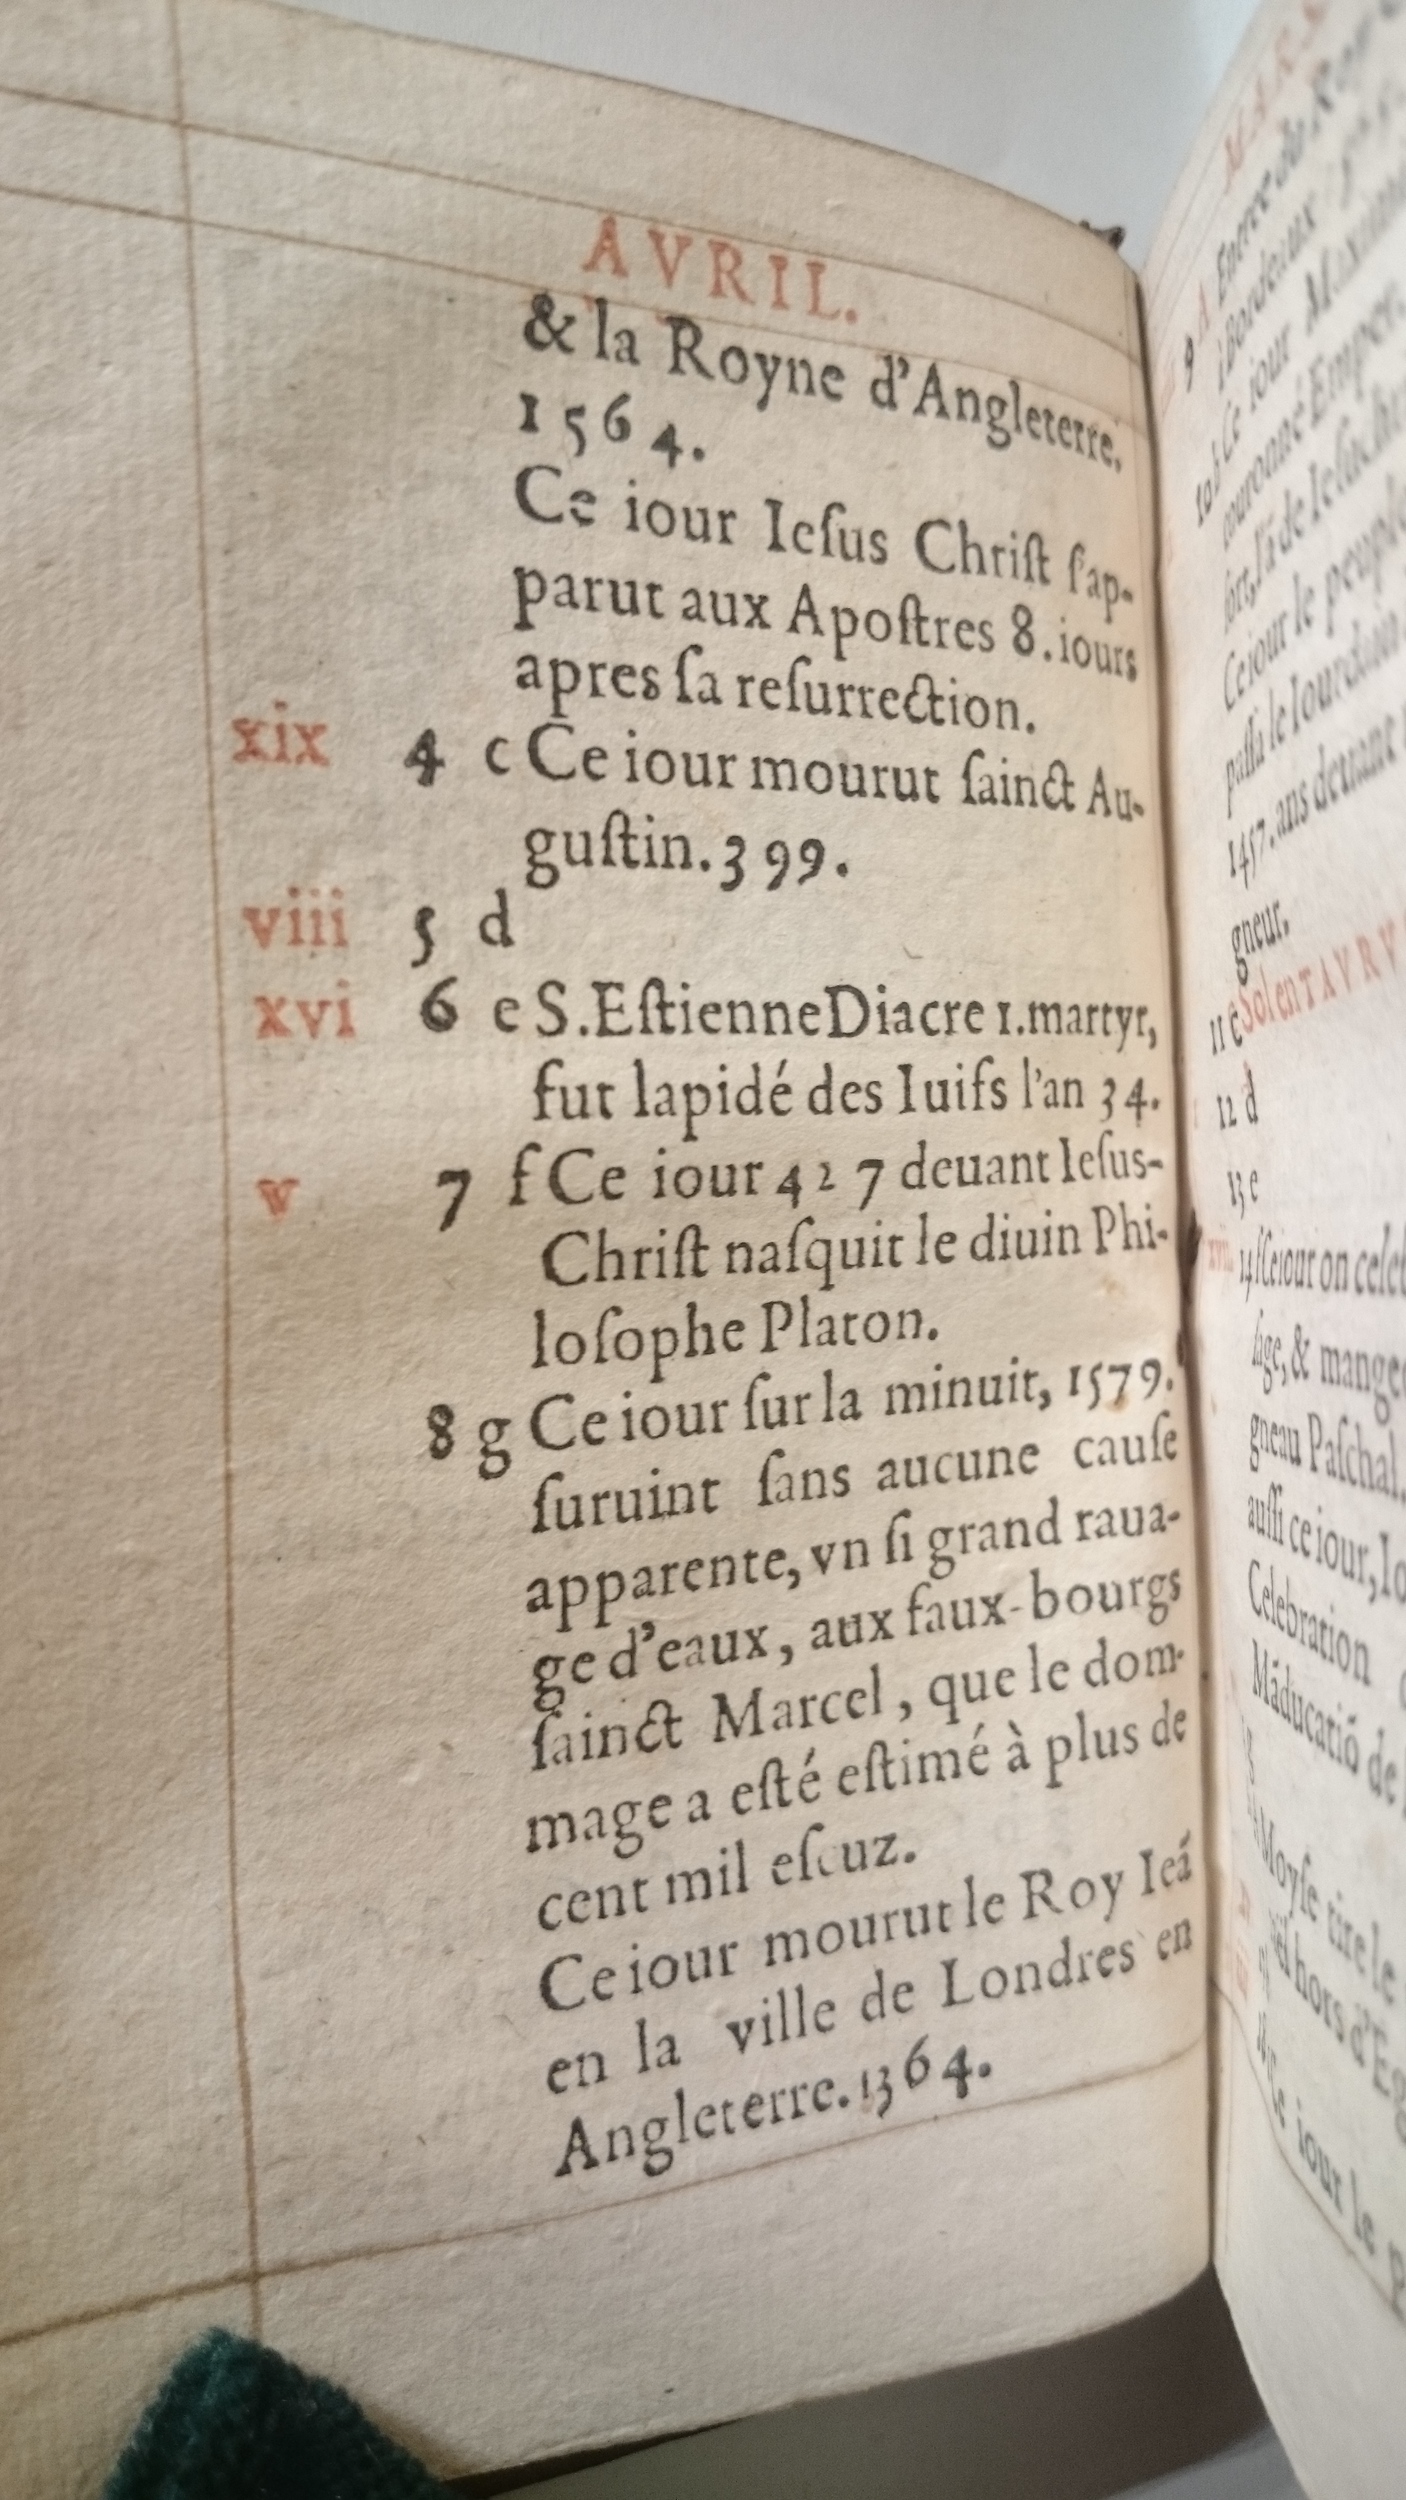 AVRIL.
& la Royne d'Angleterre.
1564.
Ce iour Ieſus Chriſt ſ'ap-
parut aux Apoſtres 8. iours
apres ſa reſurrection.
xix 4 c Ce iour mourut ſainct Au-
guſtin. 399.
viii 5 d
xvi 6 e S. Eſtienne Diacre 1. martyr,
fut lapidé des Iuifs l'an 34.
v 7 f Ce iour 427 deuant Ieſus-
Chriſt naſquit le diuin Phi-
loſophe Platon.
8 g Ce iour ſur la minuit, 1579.
ſuruint ſans aucune cauſe
apparente, vn ſi grand raua-
ge d'eaux, aux faux-bourgs
ſainct Marcel, que le dom-
mage a eſté eſtimé à plus de
cent mil eſcuz.
Ce iour mourut le Roy Ieã
en la ville de Londres en
Angleterre. 1364.
9 A Entree du Roy
Bordeaux
10 b Ce iour
couronné Emper.
Ce iour le peuple
paſſa le Iourdain
1457. ans deuant
gneur.
11 c Sol en TAVRV
12 d
13 e
14 f Ce iour on celeb
& mange
gneau Paſchal.
auſſi ce iour,
Celebration
Mãducatiõ de
Moyſe tire le
hors d'Eg
iour le